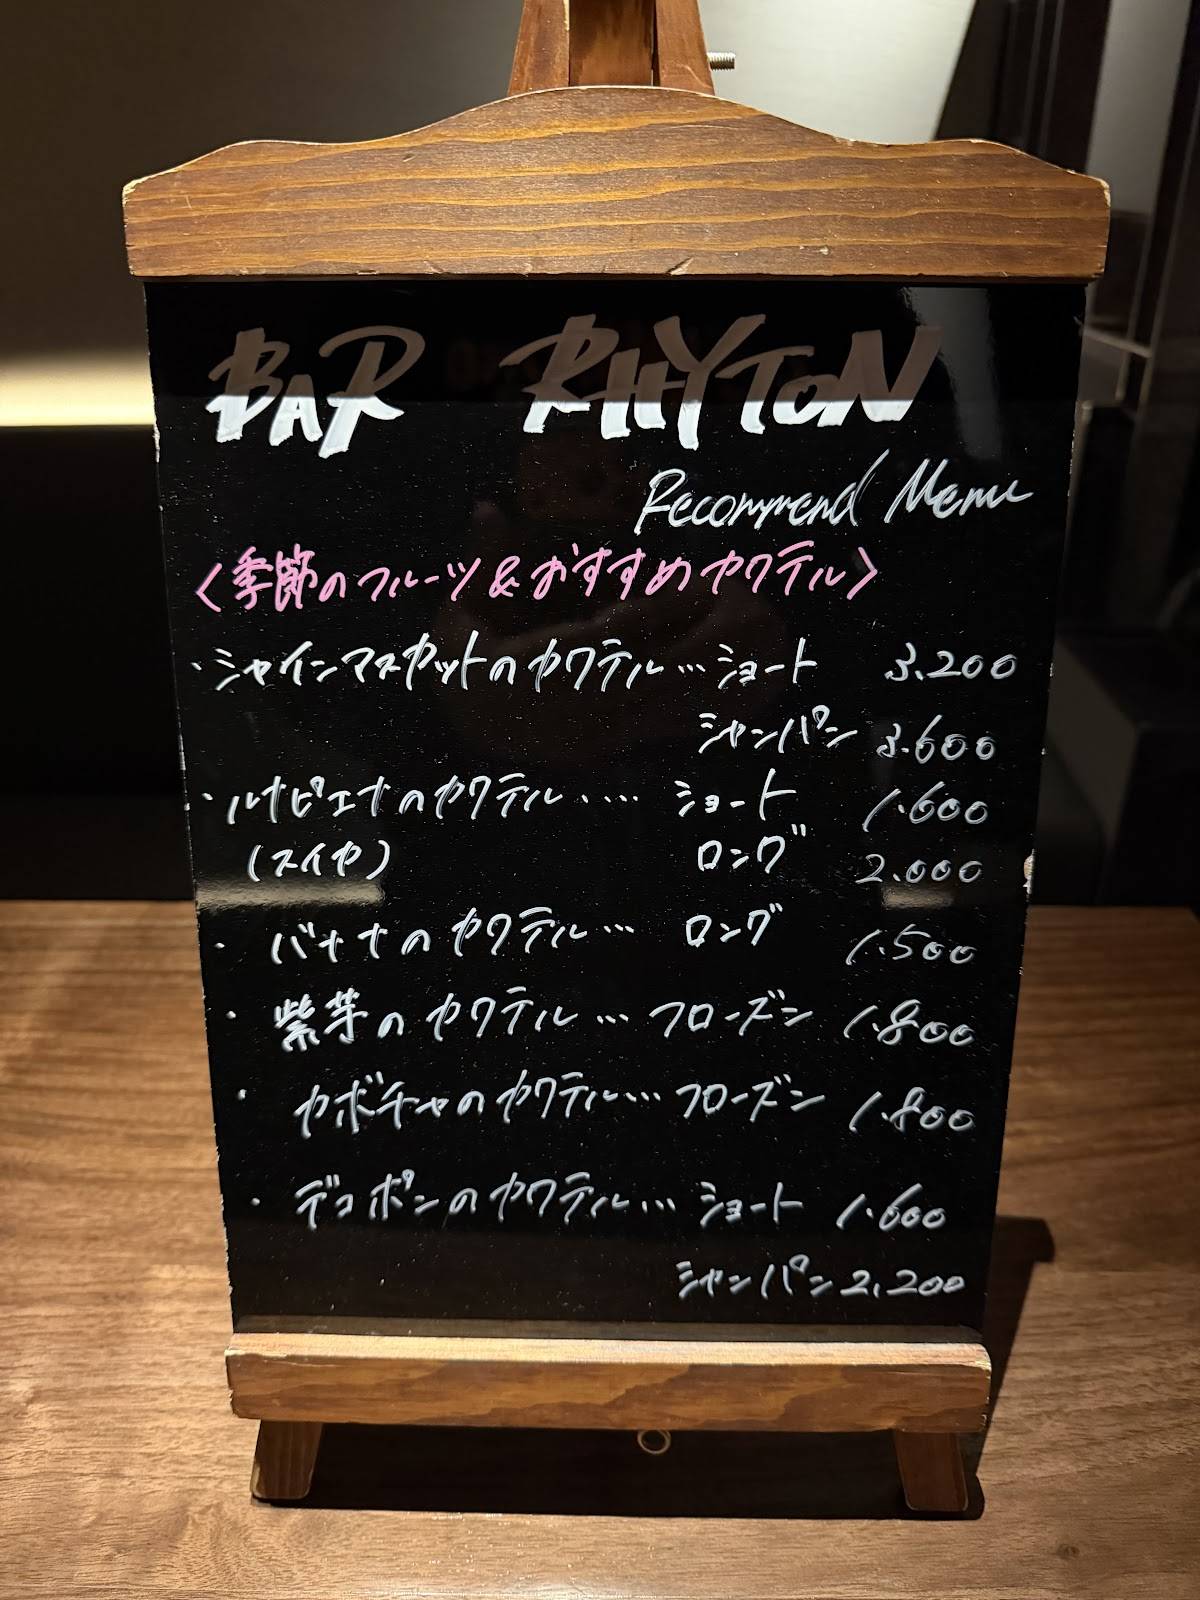 BAR RHYTON
Recommend Menu
〈季節のフルーツ&おすすめカクテル〉
・シャインマスカットのカクテル…ショート 3.200
シャンパン 3.600
・ルナピエナのカクテル‥‥ ショート 1.600
(スイカ) ロング 2.000
・バナナのカクテル… ロング 1.500
・紫芋のカクテル…フローズン 1.800
・カボチャのカクテル…フローズン 1.800
・デコポンのカクテル…ショート 1.600
シャンパン 2.200